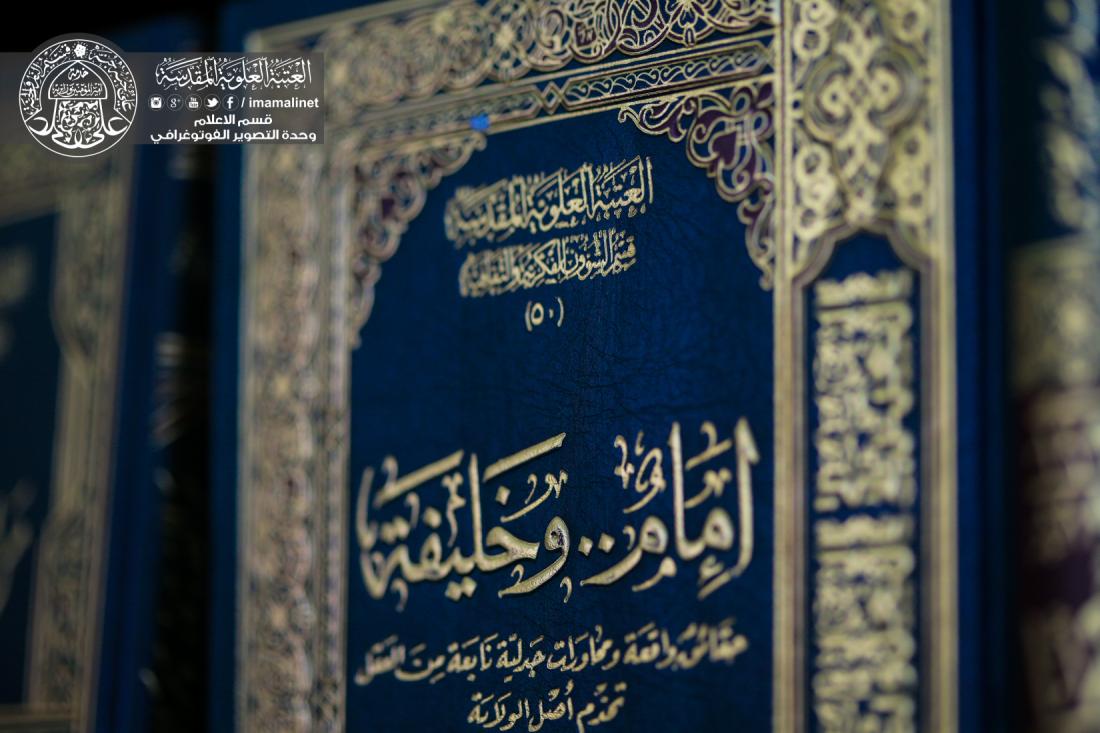 العتبة العلوية المقدسة
/ imamalinet
قسم الاعلام
وحدة التصوير الفوتوغرافي
العتبة العلوية المقدسة
قسم الشؤون الفكرية والثقافية
(٥٠)
إمام.. وخليفة
حقائق واقعة ومحاورات جدلية نابعة من العقل
تخدم أهل الولاية